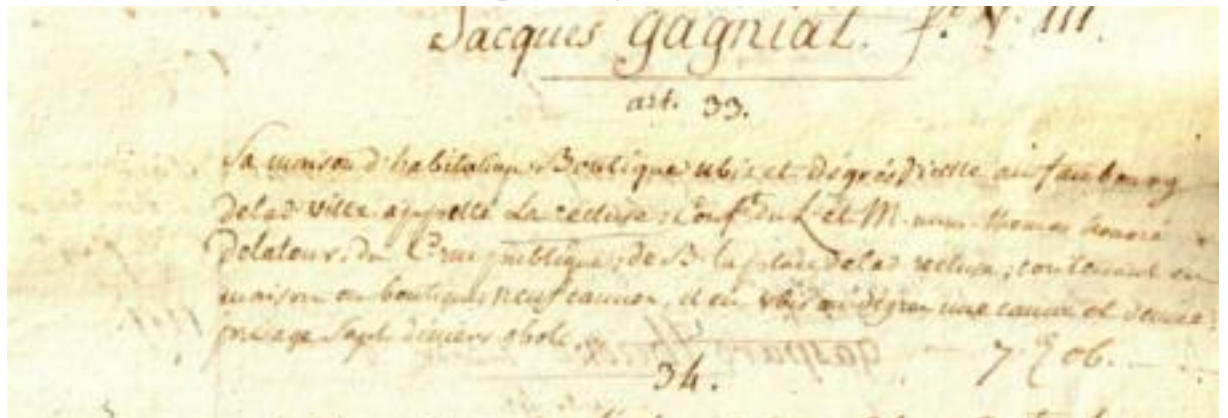 Jacques gagniat. f.° V. III.
art. 33.
Sa maison d'habitation, Boutique ubis et dégrés d'icelle au faubourg
delad ville appellé La recluse; Conf.t du L. et M. Thomas honoré
Delatour, du C. rue publique; de B. la place delad recluse; contenant en
maison ou boutique neuf cannes, et en ubis ou dégrés une canne et demie;
présage sept deniers obole. 7 ob.
34.